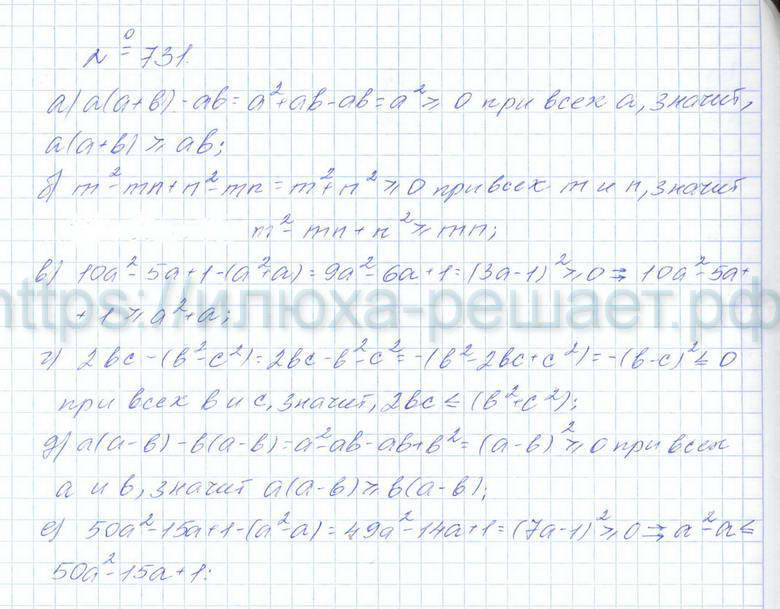 № 731.
а) a(a+в) - aв = a² + aв - aв = a² ≥ 0 при всех a, значит,
a(a+в) ≥ aв;
б) m² - mn + n² - mn = m² + n² ≥ 0 при всех m и n, значит
m² - mn + n² ≥ mn;
в) 10a² - 5a + 1 - (a² + a) = 9a² - 6a + 1 = (3a - 1)² ≥ 0 ⇒ 10a² - 5a +
https://илюха-решает.рф
+ 1 ≥ a² + a;
г) 2вc - (в² - c²) = 2вc - в² - c² = -(в² - 2вc + c²) = -(в - c)² ≤ 0
при всех в и c, значит, 2вc ≤ (в² + c²);
д) a(a-в) - в(a-в) = a² - aв - aв + в² = (a-в)² ≥ 0 при всех
a и в, значит a(a-в) ≥ в(a-в);
е) 50a² - 15a + 1 - (a² - a) = 49a² - 14a + 1 = (7a - 1)² ≥ 0 ⇒ a² - a ≤
50a² - 15a + 1.